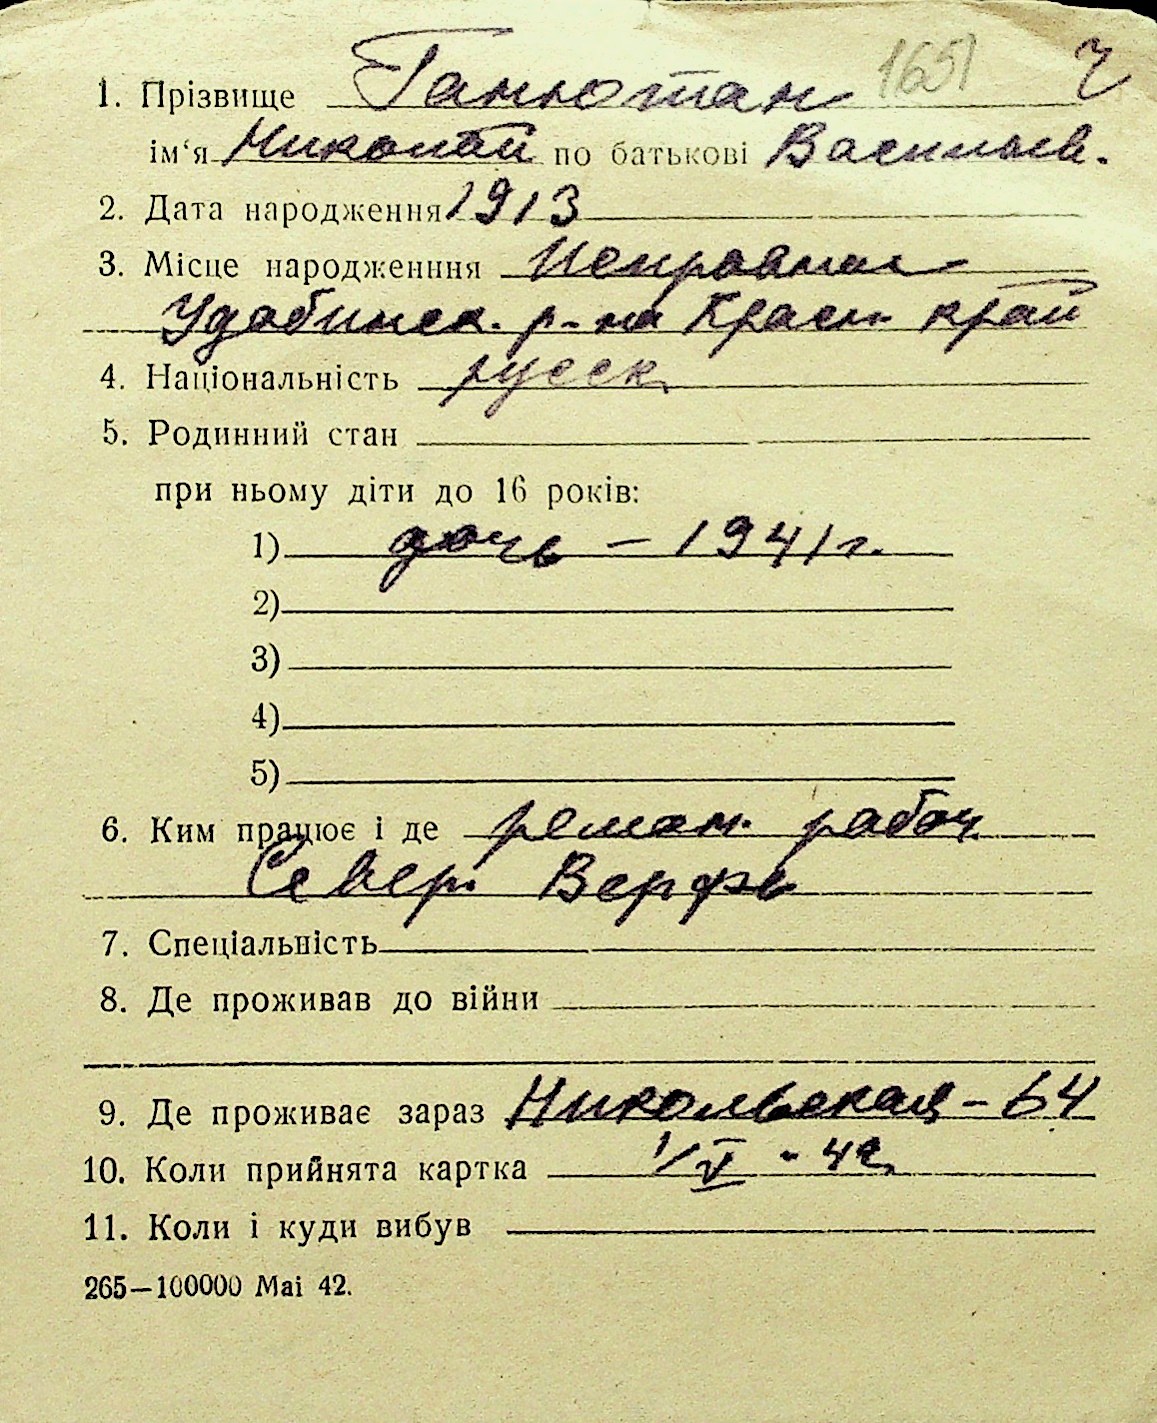 1651 Ч
1. Прізвище Ганютан
ім‘я Николай по батькові Васильев.
2. Дата народження 1913
3. Місце народженння Исправная
Удобинск. р-на Красн. край
4. Національність русск.
5. Родинний стан
при ньому діти до 16 років:
1) дочь – 1941 г.
2)
3)
4)
5)
6. Ким працює і де ремон. рабоч.
Север. Верфь
7. Спеціальність
8. Де проживав до війни
9. Де проживає зараз Никольская – 64
10. Коли прийнята картка 1/V - 42
11. Коли і куди вибув
265—100000 Mai 42.